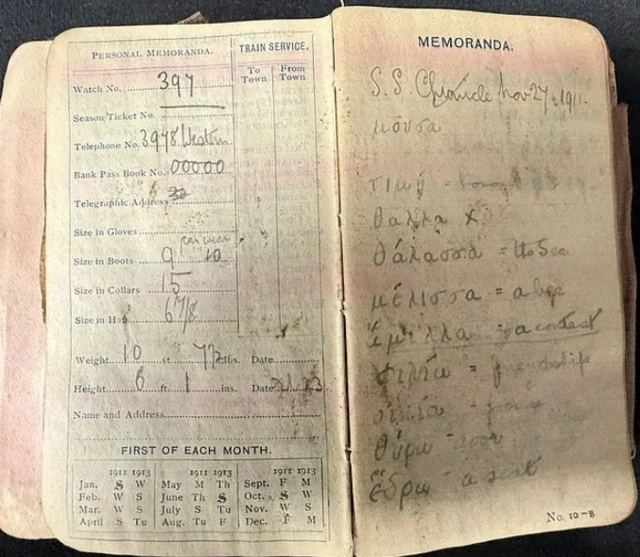 PERSONAL MEMORANDA.
Watch No. 397
Season Ticket No.
Telephone No. 3978 Western
Bank Pass Book No. 00000
Telegraphic Address
Size in Gloves
can wear
Size in Boots 9 10
Size in Collars 15
Size in Hat 6 7/8
Weight 10 st 7½ lbs. Date
Height 6 ft 1 ins. Date
Name and Address
TRAIN SERVICE.
To Town From Town
FIRST OF EACH MONTH.
1911 1913 1911 1913 1911 1913
Jan. S W May M Th Sept. F M
Feb. W S June Th S Oct. S W
Mar. W S July S Tu Nov. W S
April S Tu Aug. Tu F Dec. F M
MEMORANDA.
S.S. Chronicle Nov 27, 1911.
μουσα
τιμή =
θαλλα X
θάλασσα = the Sea
μέλισσα = a bee
ἁμιλλα = a contest
φιλία = friendship
θύρα door
ἕδρα = a seat
No. 10-B